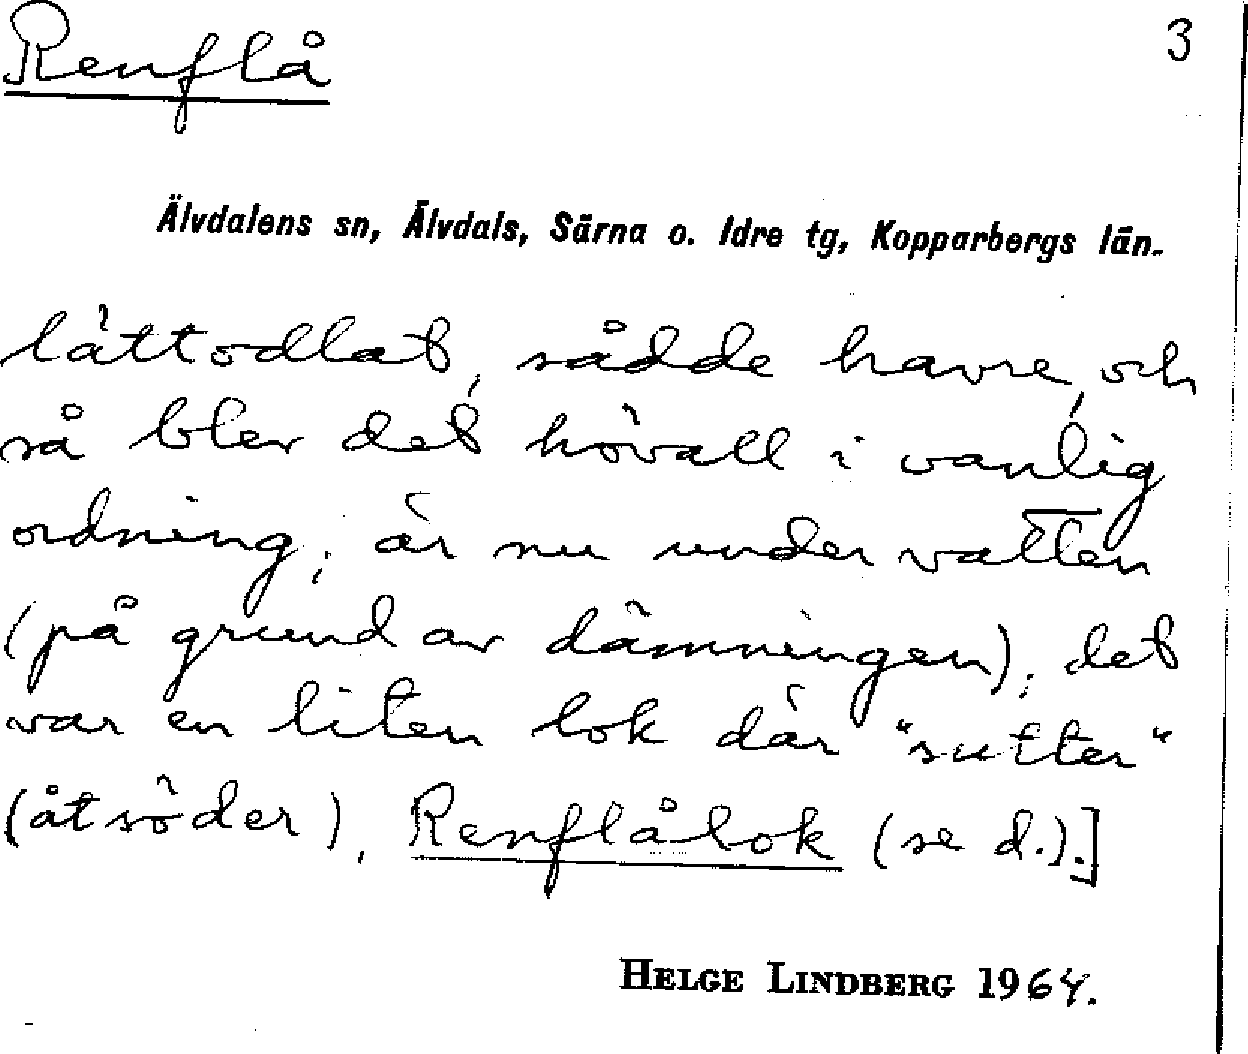 Renflå 3
Älvdalens sn, Älvdals, Särna o. Idre tg, Kopparbergs län.
lättodlat, sådde havre, och
så blev det hövall i vanlig
ordning; är nu under vatten
(på grund av dämningen); det
var en liten lok där "sutter"
(åt söder), Renflålok (se d.).]
HELGE LINDBERG 1964.